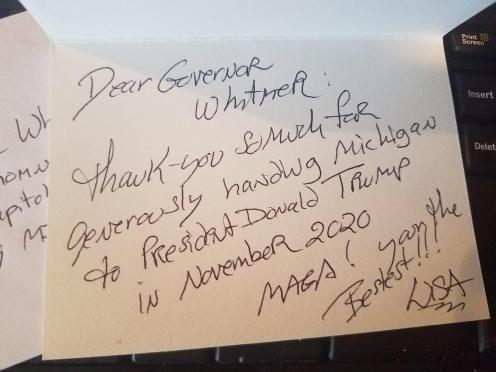 Dear Governor
Whitmer:
thank-you so much for
generously handing Michigan
to President Donald Trump
in November 2020
MAGA! your the
Bestest!!!
LISA
Wh
apitol
Print
Screen
Insert
Delet